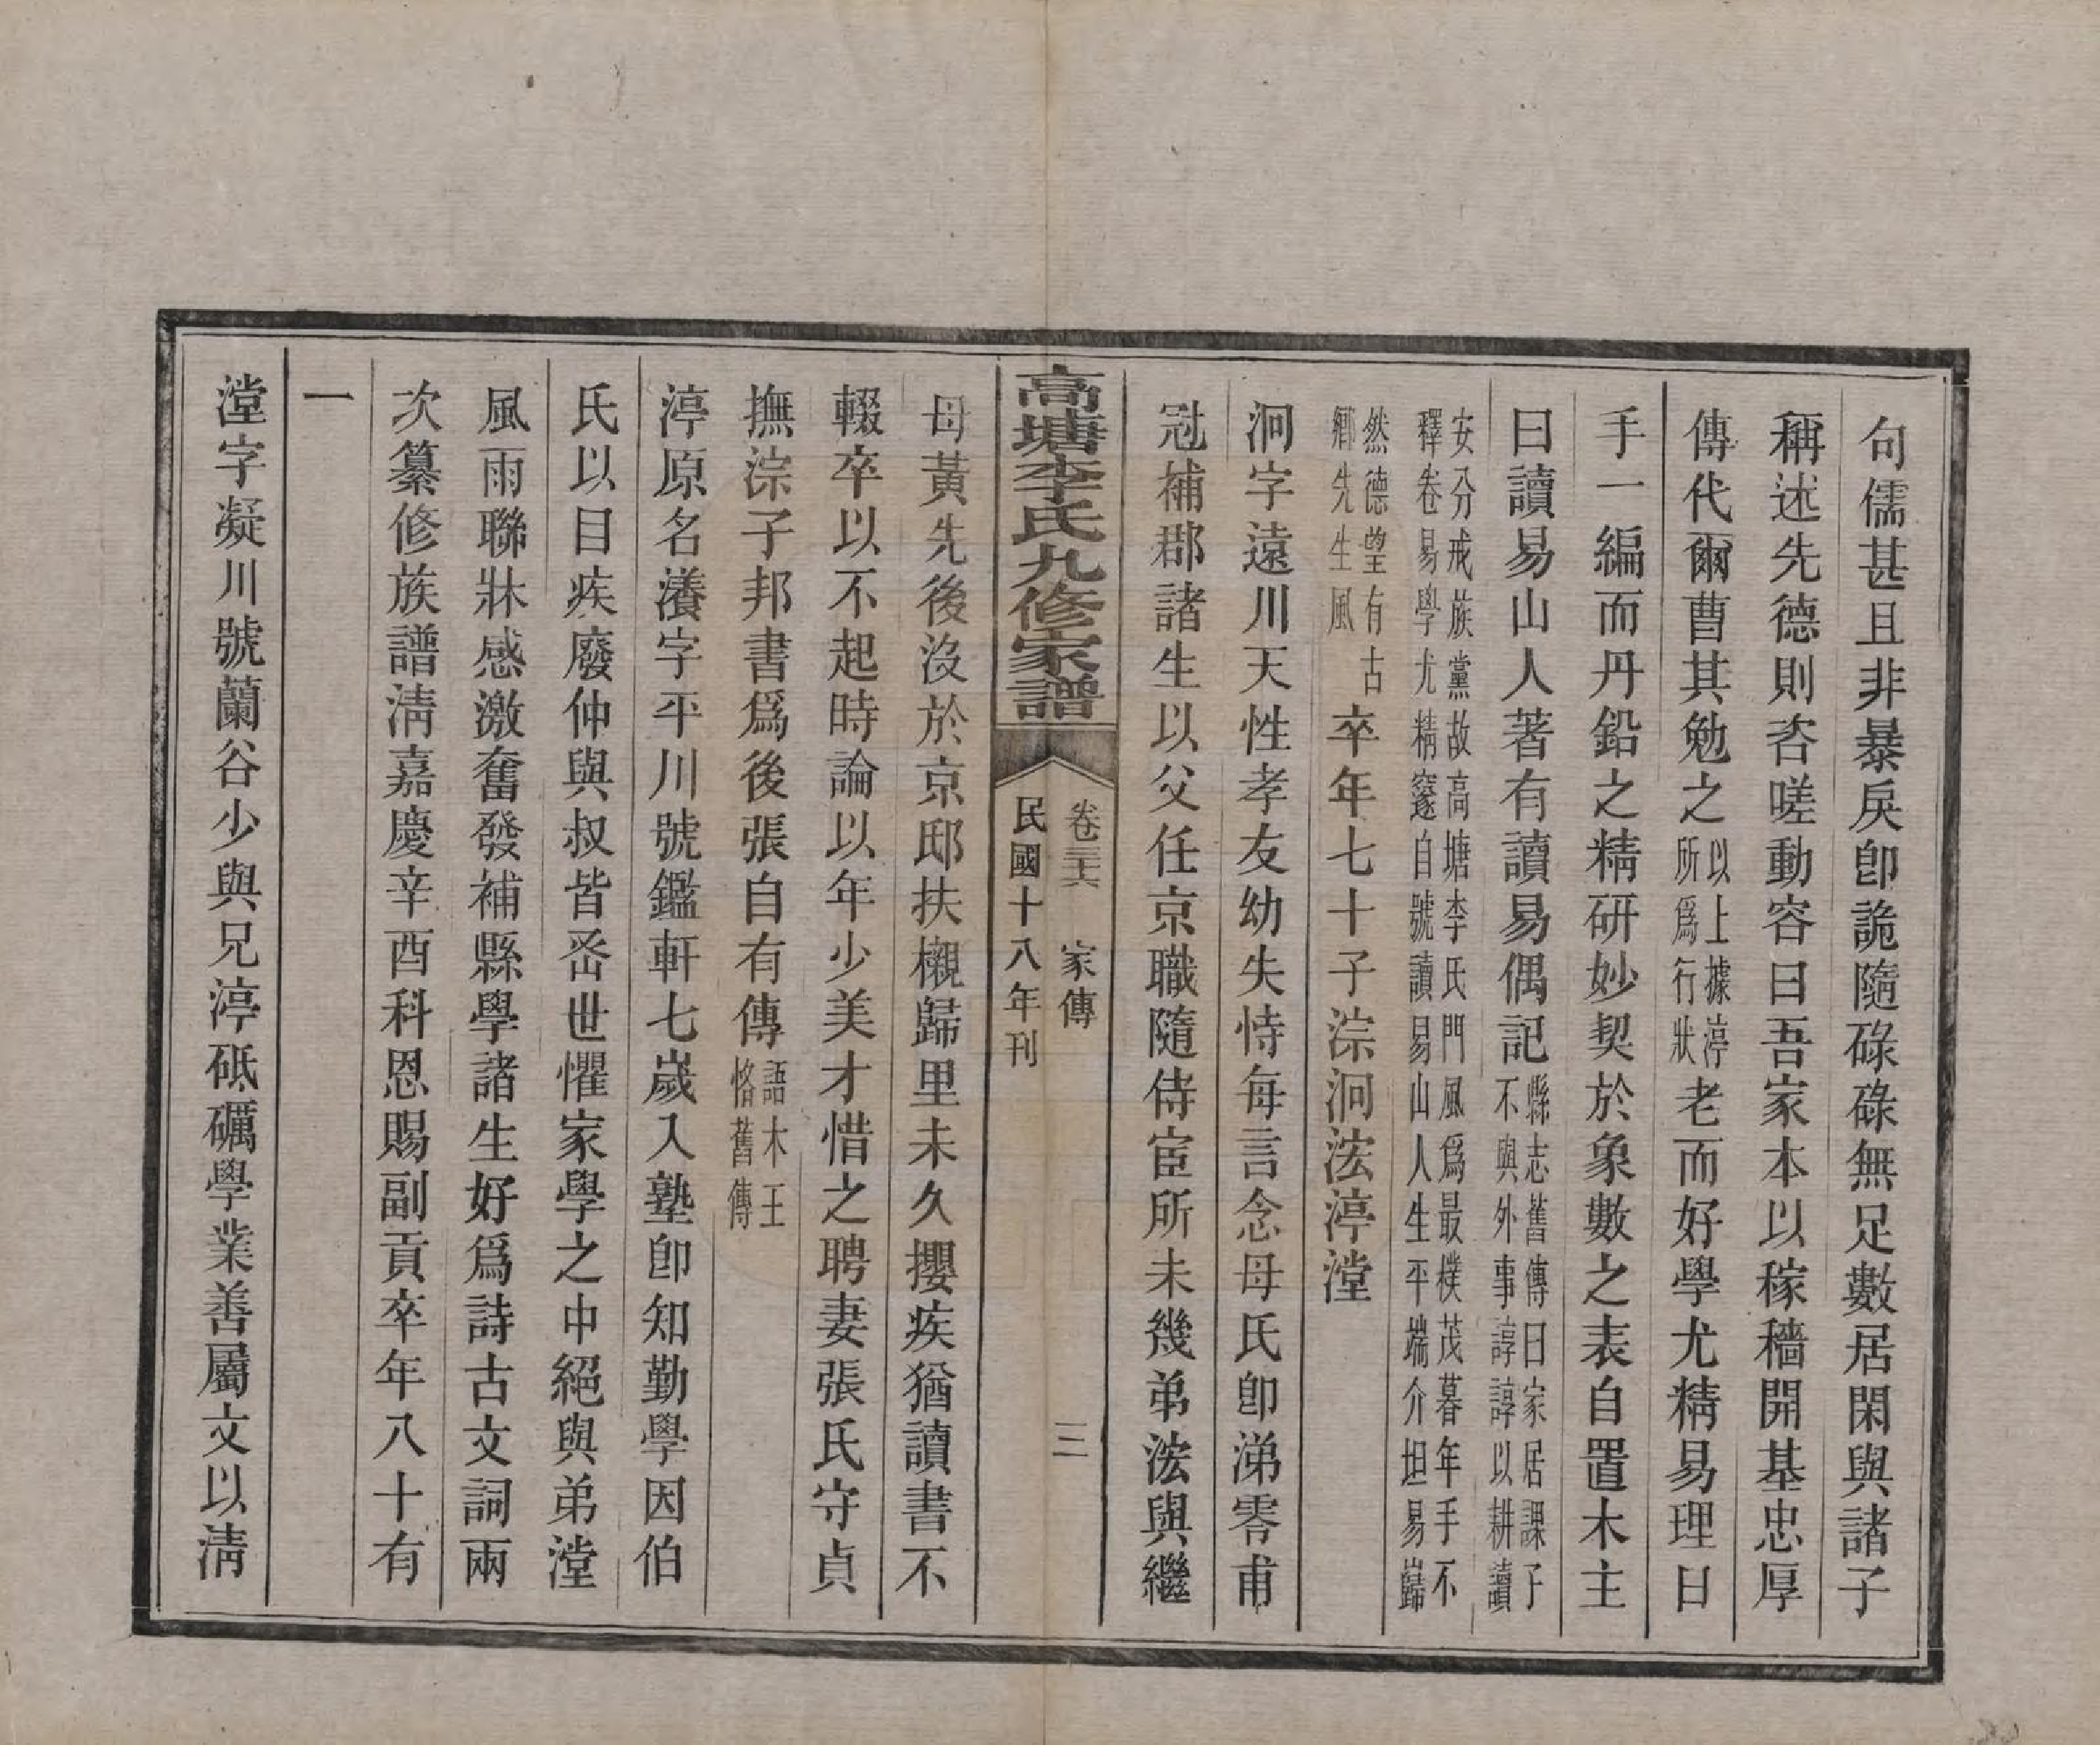 句儒甚且非暴戾卽詭隨碌碌無足數居閑與諸子
稱述先德則咨嗟動容曰吾家本以稼穡開基忠厚
傳代爾曹其勉之以上據渟所爲行狀老而好學尤精易理日
手一編而丹鉛之精研妙契於象數之表自置木主
曰讀易山人著有讀易偶記縣志舊傳曰家居課子不與外事諄諄以耕讀
安分戒族黨故高塘李氏門風爲最樸茂暮年手不
釋卷易學尤精邃自號讀易山人生平端介坦易歸
然德望有古
鄉先生風
卒年七十子淙泂浤渟漟
泂字遠川天性孝友幼失恃每言念母氏卽涕零甫
冠補郡諸生以父任京職隨侍宦所未幾弟浤與繼
高塘李氏九修家譜
卷三十六 家傳 三
民國十八年刊
母黃先後沒於京邸扶櫬歸里未久攖疾猶讀書不
輟卒以不起時論以年少美才惜之聘妻張氏守貞
撫淙子邦書爲後張自有傳語木王恪舊傳
渟原名瀁字平川號鑑軒七歲入塾卽知勤學因伯
氏以目疾廢仲與叔皆早世懼家學之中絕與弟漟
風雨聯牀感激奮發補縣學諸生好爲詩古文詞兩
次纂修族譜淸嘉慶辛酉科恩賜副貢卒年八十有
一
漟字凝川號蘭谷少與兄渟砥礪學業善屬文以淸